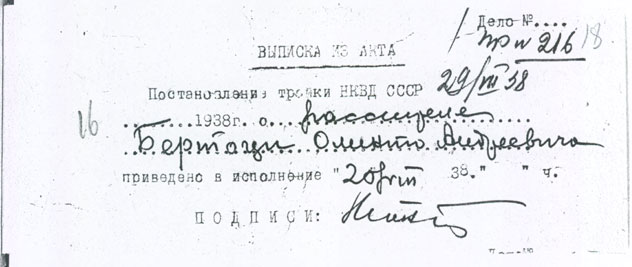 Дело №....
пр № 216 18
ВЫПИСКА ИЗ АКТА
Постановление тройки НКВД СССР 29/III 38
16 ........1938г. о расстреле
Бертаци Олинто Андреевича
приведено в исполнение " 38." " ч.
ПОДПИСИ: